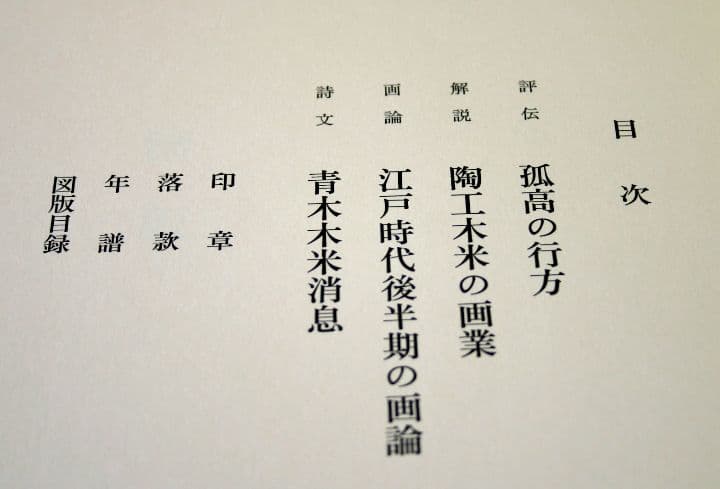 目次
評伝 孤高の行方
解説 陶工木米の画業
画論 江戸時代後半期の画論
詩文 青木木米消息
印章
落款
年譜
図版目録